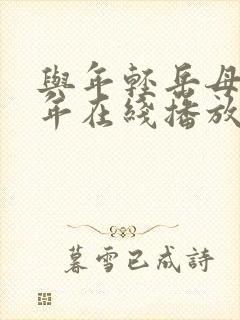 與年輕岳母
年在綫播放
暮雪已成詩